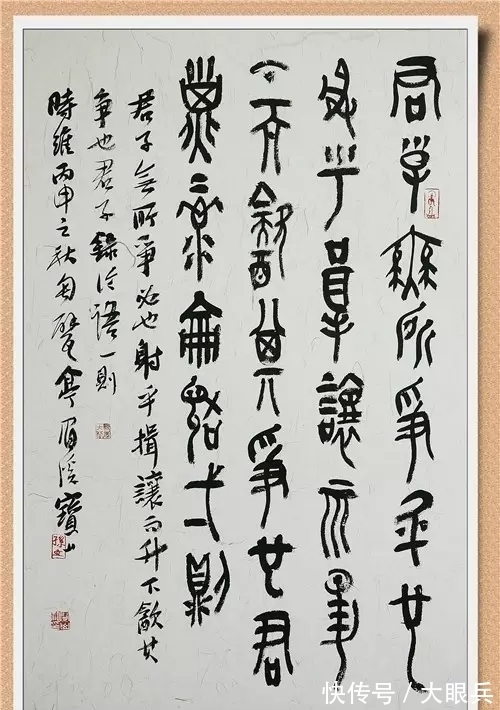 君子無所爭必也
射乎揖讓而升
下而飲其爭也君
子录論語弌則
君子無所爭必也射乎揖讓而升下飲其
爭也君子錄論語一則
時維丙申之秋匋甓亭寶山
快传号/大眼兵